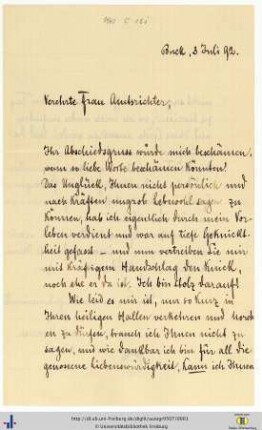 Buck, 3 Juli 92.
Verehrte Frau Amtsrichter,
Ihr Abschiedsgruss würde mich beschämen,
wenn so liebe Worte beschämen könnten!
Das Unglück, Ihnen nicht persönlich und
nach Kräften ungrob Lebewohl sagen zu
können, hab ich eigentlich durch mein Vor-
leben verdient und war auf tiefe Geknickt-
heit gefasst – und nun vertreiben Sie mir
mit kräftigem Handschlag den Knick,
noch ehe er da ist. Ich bin stolz darauf!
Wie leid es mir ist, nur so kurz in
Ihren heiligen Hallen verkehren und
zu dürfen, brauch ich Ihnen nicht zu
sagen, und wie dankbar ich bin für all die
genossene Liebenswürdigkeit, kann ich Ihnen
© Universitätsbibliothek Freiburg